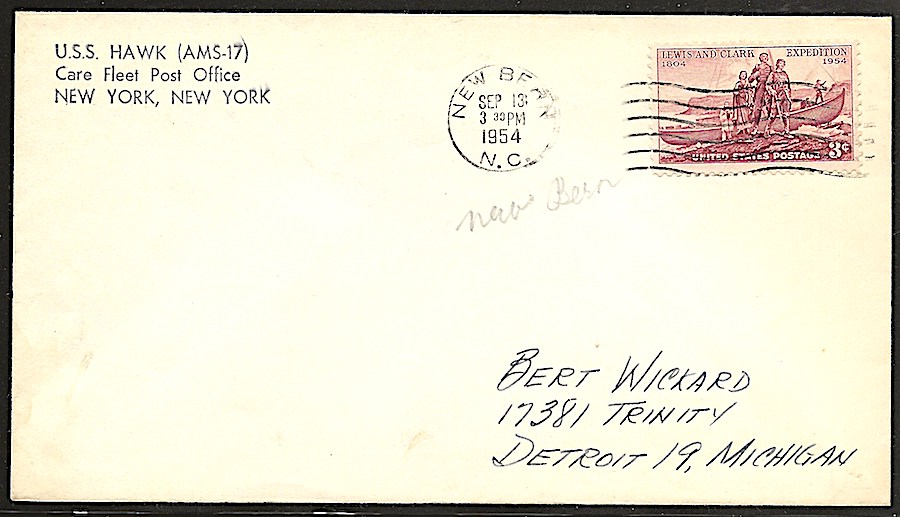 U.S.S. HAWK (AMS-17)
Care Fleet Post Office
NEW YORK, NEW YORK
NEW BERN
SEP 13
3 30 PM
1954
N.C.
LEWIS AND CLARK EXPEDITION
1804 1954
UNITED STATES POSTAGE 3¢
New Bern
BERT WICKARD
17381 TRINITY
DETROIT 19, MICHIGAN